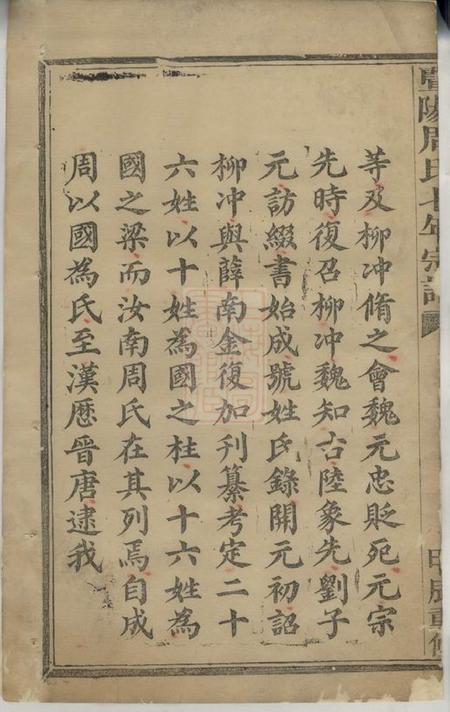 等及柳冲脩之會魏元忠貶死元宗
先時復召柳冲魏知古陸象先劉子
元訪綴書始成號姓氏錄開元初詔
柳冲與薛南金復加刊纂考定二十
六姓以十姓為國之柱以十六姓為
國之梁而汝南周氏在其列焉自成
周以國為氏至漢歷晉唐逮我
陽周氏七年宗譜